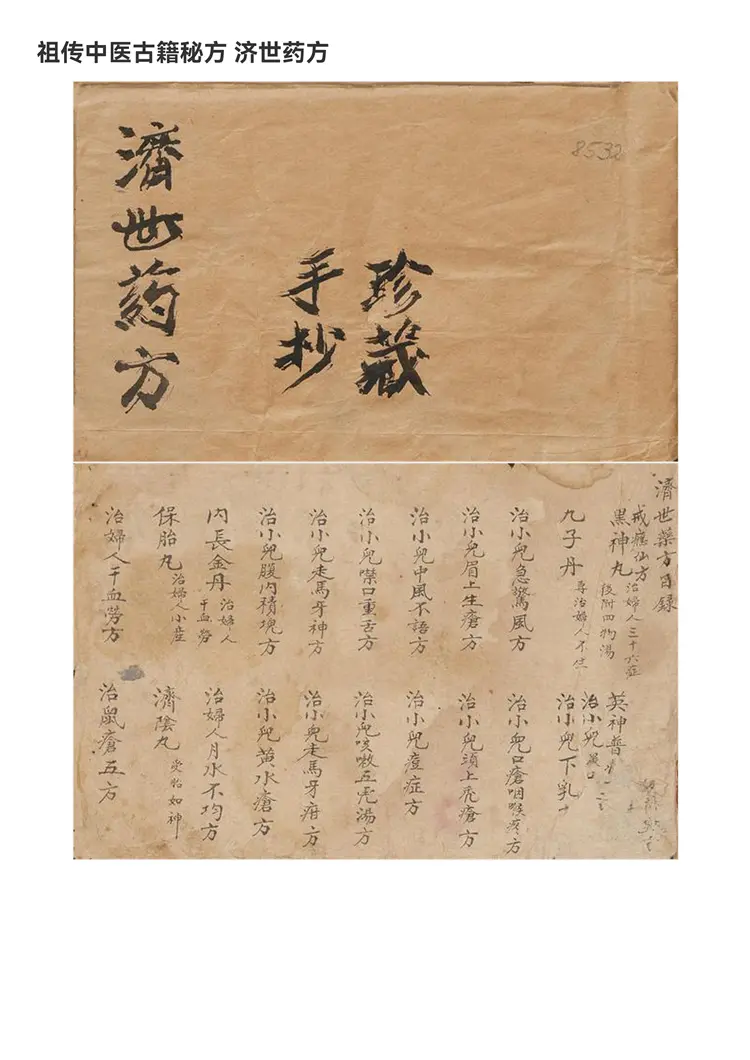 祖传中医古籍秘方 济世药方
8532
珍藏
手抄
濟世药方
濟世藥方目録
戒癮仙方
黑神丸 治婦人三十六症 後附四物湯
九子丹 專治婦人不生
治小兒急驚風方
治小兒眉上生瘡方
治小兒中風不語方
治小兒噤口重舌方
治小兒走馬牙神方
治小兒腹内積塊方
内長金丹 治婦人干血勞
保胎丸 治婦人小產
治婦人干血勞方
英神普
治小兒
治小兒下乳
治小兒口瘡咽喉疼方
治小兒頭上禿瘡方
治小兒痘症方
治小兒咳嗽五虎湯方
治小兒走馬牙疳方
治小兒黄水瘡方
治婦人月水不均方
濟陰丸 受胎如神
治鼠瘡五方